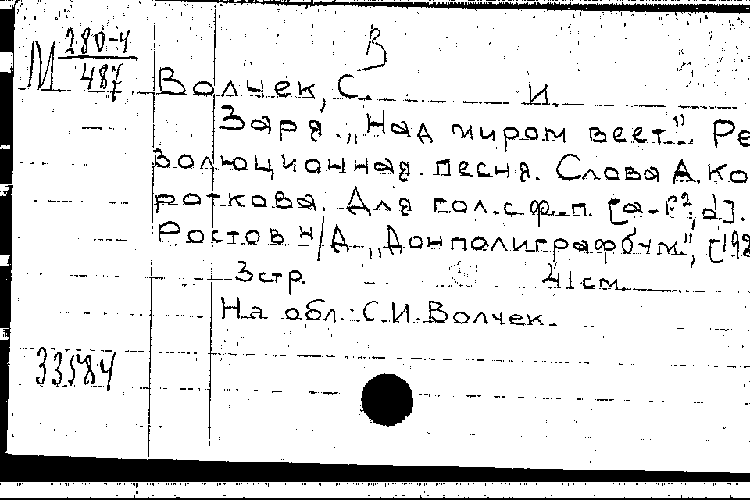 В
М 280-4
487
Волчек, С. И.
Заря. „Над миром веет". Ре
волюционная песня. Слова А. Ко
роткова. Для гол. с ф-п. [a-f², d].
Ростов н/Д „Донполиграфбум", [192
3 стр. 41 см.
На обл.: С.И. Волчек.
33584